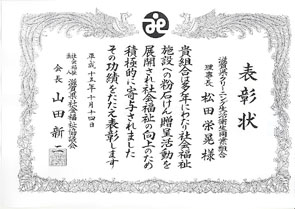 表彰状
滋賀県クリーニング生活衛生同業組合
理事長 松田栄晃様
貴組合は多年にわたり社会福祉
施設への粉石けん贈呈活動を
展開され社会福祉の向上のため
積極的に寄与されました
その功績をたたえ表彰します
平成十五年十月十四日
社会福祉法人 滋賀県社会福祉協議会
会長 山田新二